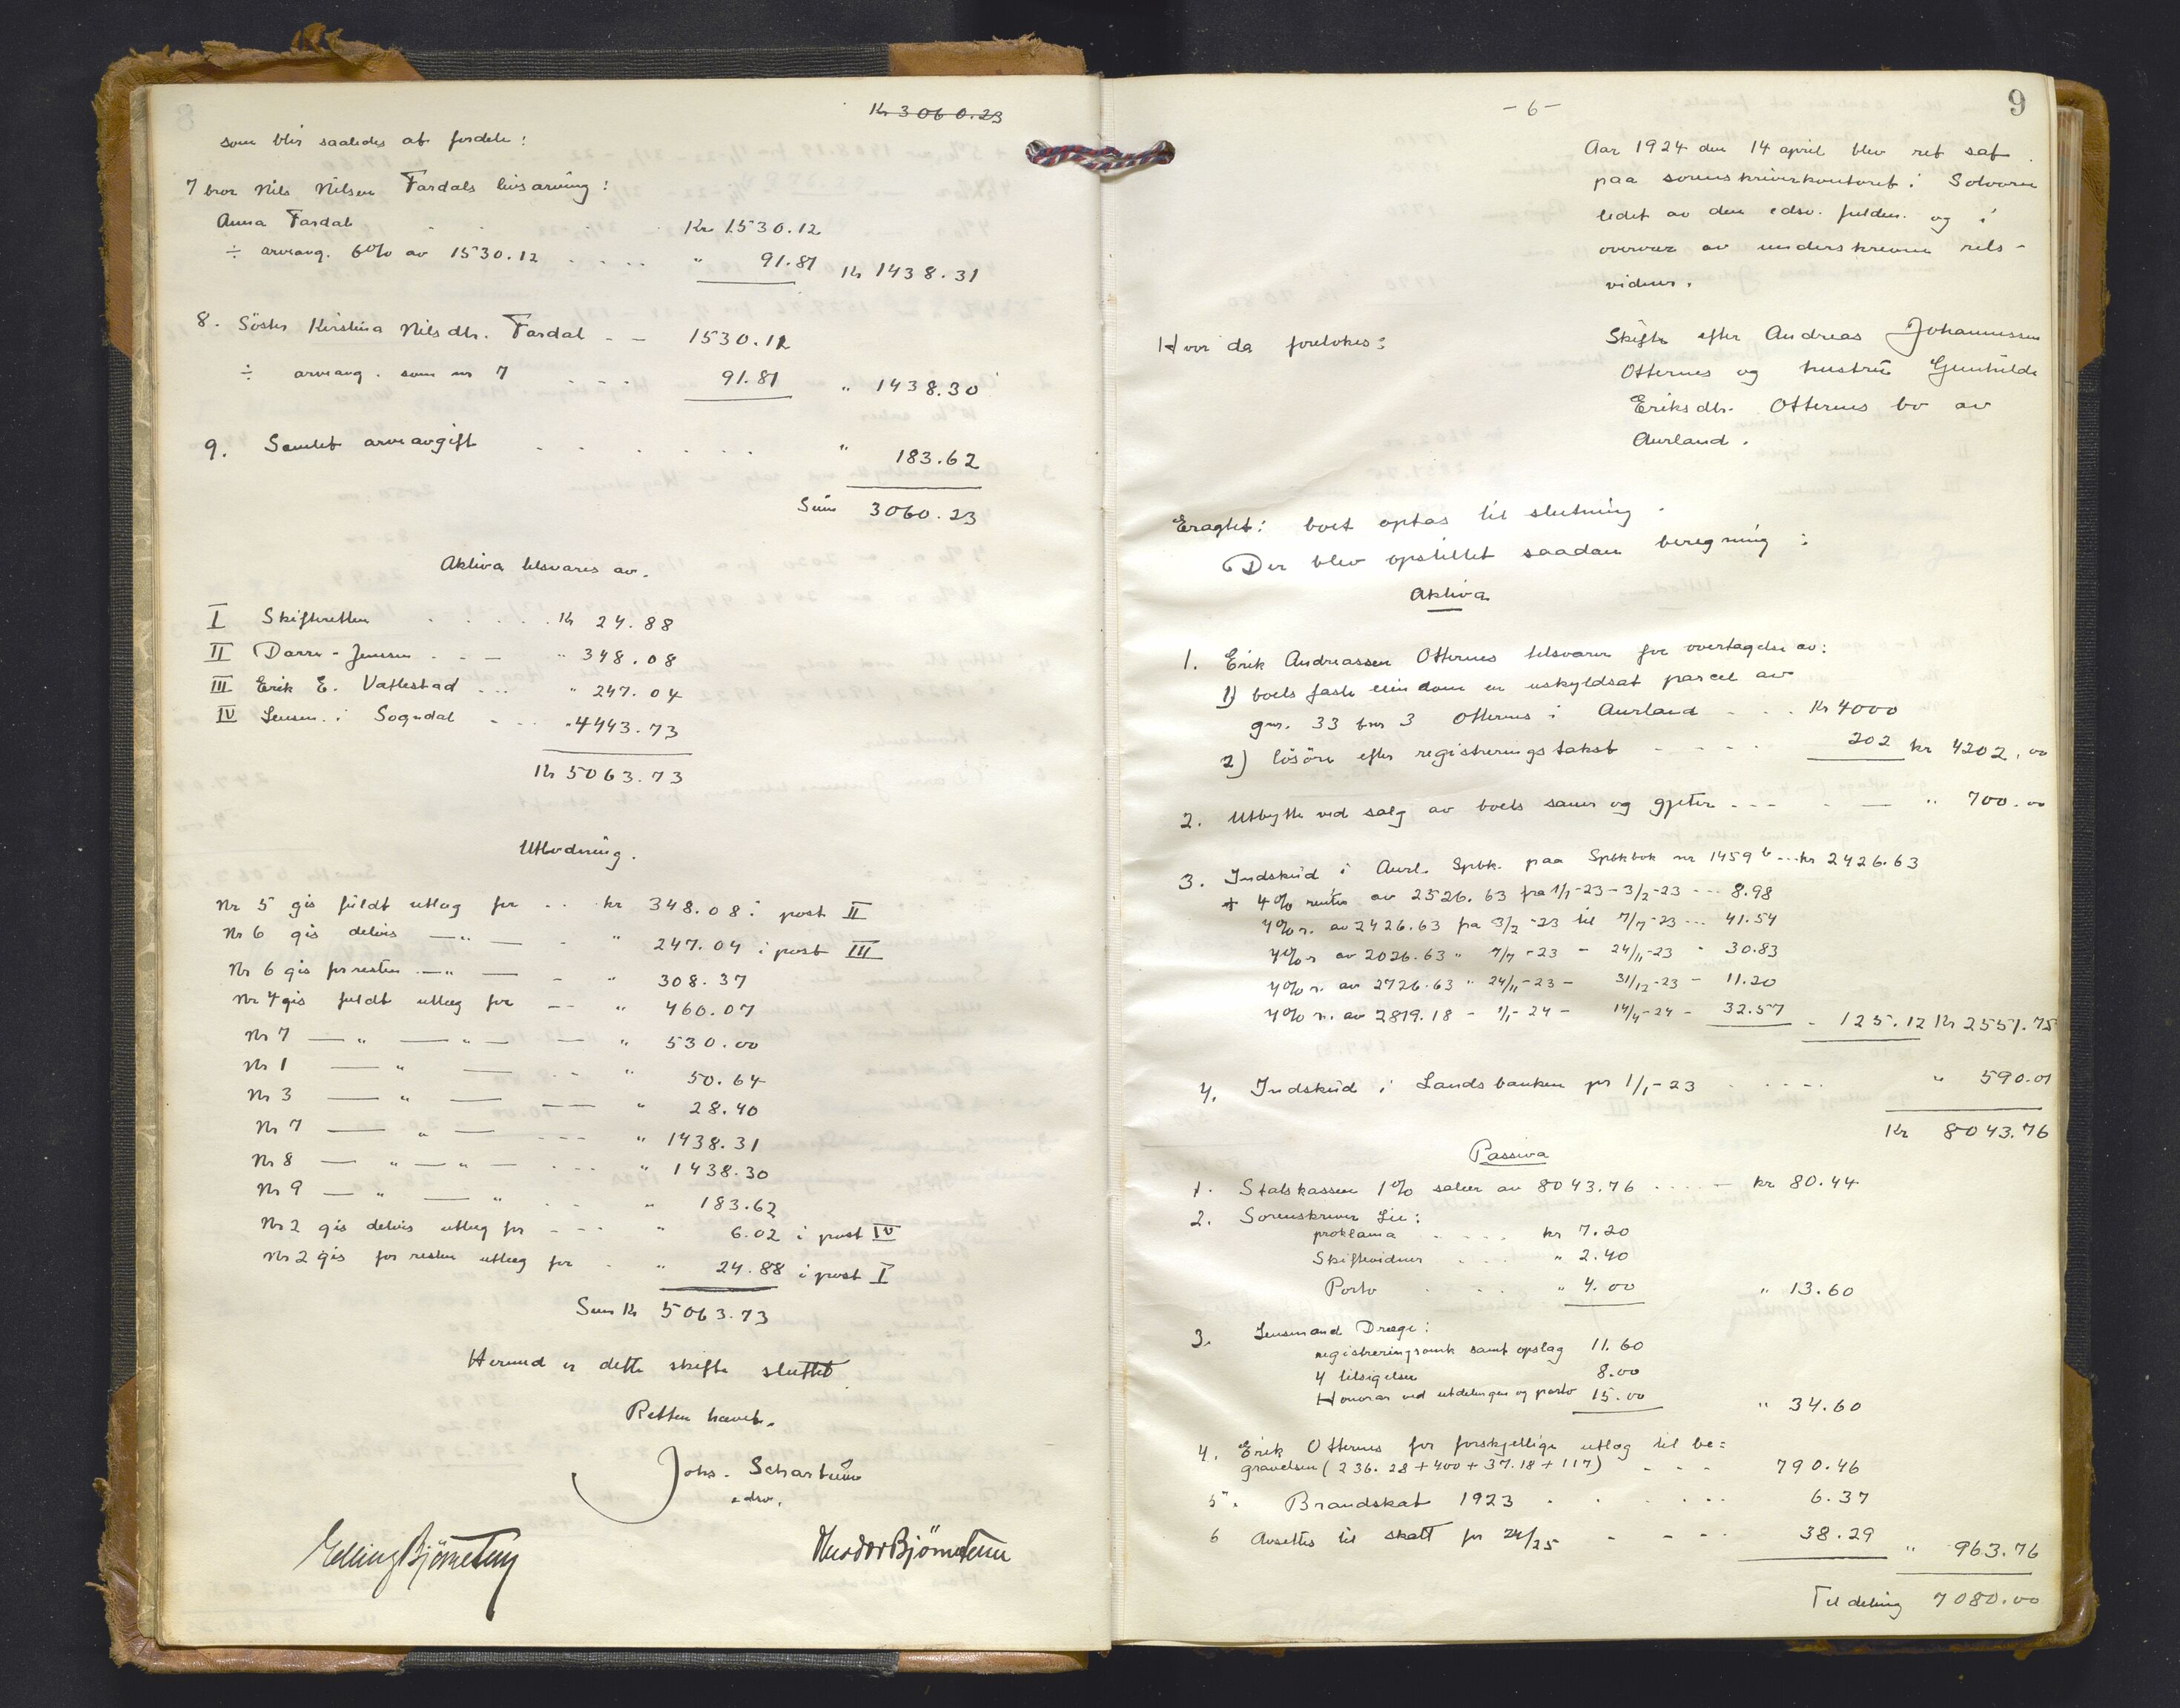 Kr 3060.23
som blir saaledes at fordele:
7 bror Nils Nilsen Fardals livsarving:
Anna Fardal . . . Kr 1530.12
÷ arveavg. 6% av 1530.12 . . . . " 91.81 Kr 1438.31
8. Söster Kirstina Nilsdtr. Fardal - - 1530.12
÷ arveavg. som nr 7 . - - . 91.81 " 1438.30
9. Samlet arveavgift . . . . . . " 183.62
Sum 3060.23
Aktiva tilsvares av.
I Skifteretten . . . . . Kr 24.88
II Darre-Jensen . - - " 348.08
III Erik E. Vatlestad - .. " 247.04
IV Lensm. i Sogndal - - .. " 4443.73
Kr 5063.73
Utlodning.
Nr 5 gis fuldt utlæg for . . kr 348.08 i post II
Nr 6 gis delvis —"— - " 247.04 i post III
Nr 6 gis for resten —"— - " 308.37
Nr 4 gis fuldt utlæg for -- " 460.07
Nr 7 —"—"— — " 530.00
Nr 1 —"— - - " 50.64
Nr 3 —"— -- " 28.40
Nr 7 —"— --- " 1438.31
Nr 8 —"—"— --- " 1438.30
Nr 9 —"—" . . " 183.62
Nr 2 gis delvis utlæg for --- " 6.02 i post IV
Nr 2 gis for resten utlæg for . " 24.88 i post I
Sum Kr 5063.73
Hermed er dette skifte sluttet.
Retten hævet.
Johs. Schartum
edsv.
Elling Bjørnetun
Theodor Bjørnetun
- 6 -
9
Aar 1924 den 14 april blev ret sat
paa sorenskriverkontoret i Solvorn
ledet av den edsv. fuldm. og i
overvær av underskrevne rets-
vidner.
Hvor da foretokes:
Skifte efter Andreas Johannessen
Otternes og hustru Gunhilde
Eriksdtr. Otternes bo av
Aurland.
Eragtet: boet optas til slutning.
Der blev opstillet saadan beregning:
Aktiva
1. Erik Andreassen Otternes tilsvarer for overtagelse av:
1) boets faste eiendom en uskyldsat parcel av
gnr. 33 bnr 3 Otternes i Aurland - . . Kr 4000
2) lösöre efter registreringstakst - - - . 202 kr 4202,00
2. Utbytte ved salg av boets sauer og gjeter - - - . — " 700.00
3. Indskud i Aurl. Spbk. paa Spbkbok nr 1459 b ... kr 2426.63
+ 4% renter av 2526.63 fra 1/1-23 - 3/2-23 --- 8.98
4% r. av 2426.63 fra 3/2-23 til 7/7-23 ... 41.54
4% r av 2026.63 " 7/7-23 - 24/11-23 - 30.83
4% r. av 2726.63 " 24/11-23 - 31/12-23 - 11.20
4% r. av 2819.18 - 1/1-24 - 14/4-24 - 32.57 - 125.12 Kr 2551.75
4. Indskud i Landsbanken pr 1/1-23 . . - - . " 590.01
Kr 8043.76
Passiva
1. Statskassen 1% salær av 8043.76 . . . . - kr 80.44
2. Sorenskriver Lie:
proklama . - - . kr 7.20
Skiftevidner . . . . " 2.40
Porto . . . . " 4.00 " 13.60
3. Lensmand Dræge:
registreringsomk samt opslag 11.60
4 tilsigelser 8.00
Honorar ved utdelingen og porto 15.00 " 34.60
4. Erik Otternes for forskjellige utlæg til be=
gravelsen (236.28 + 400 + 37.18 + 117) - - - 790.46
5. Brandskat 1923 . . . . .. 6.37
6 Avsettes til skatt for 24/25 - - - .. 38.29 " 963.76
Til deling 7080.00